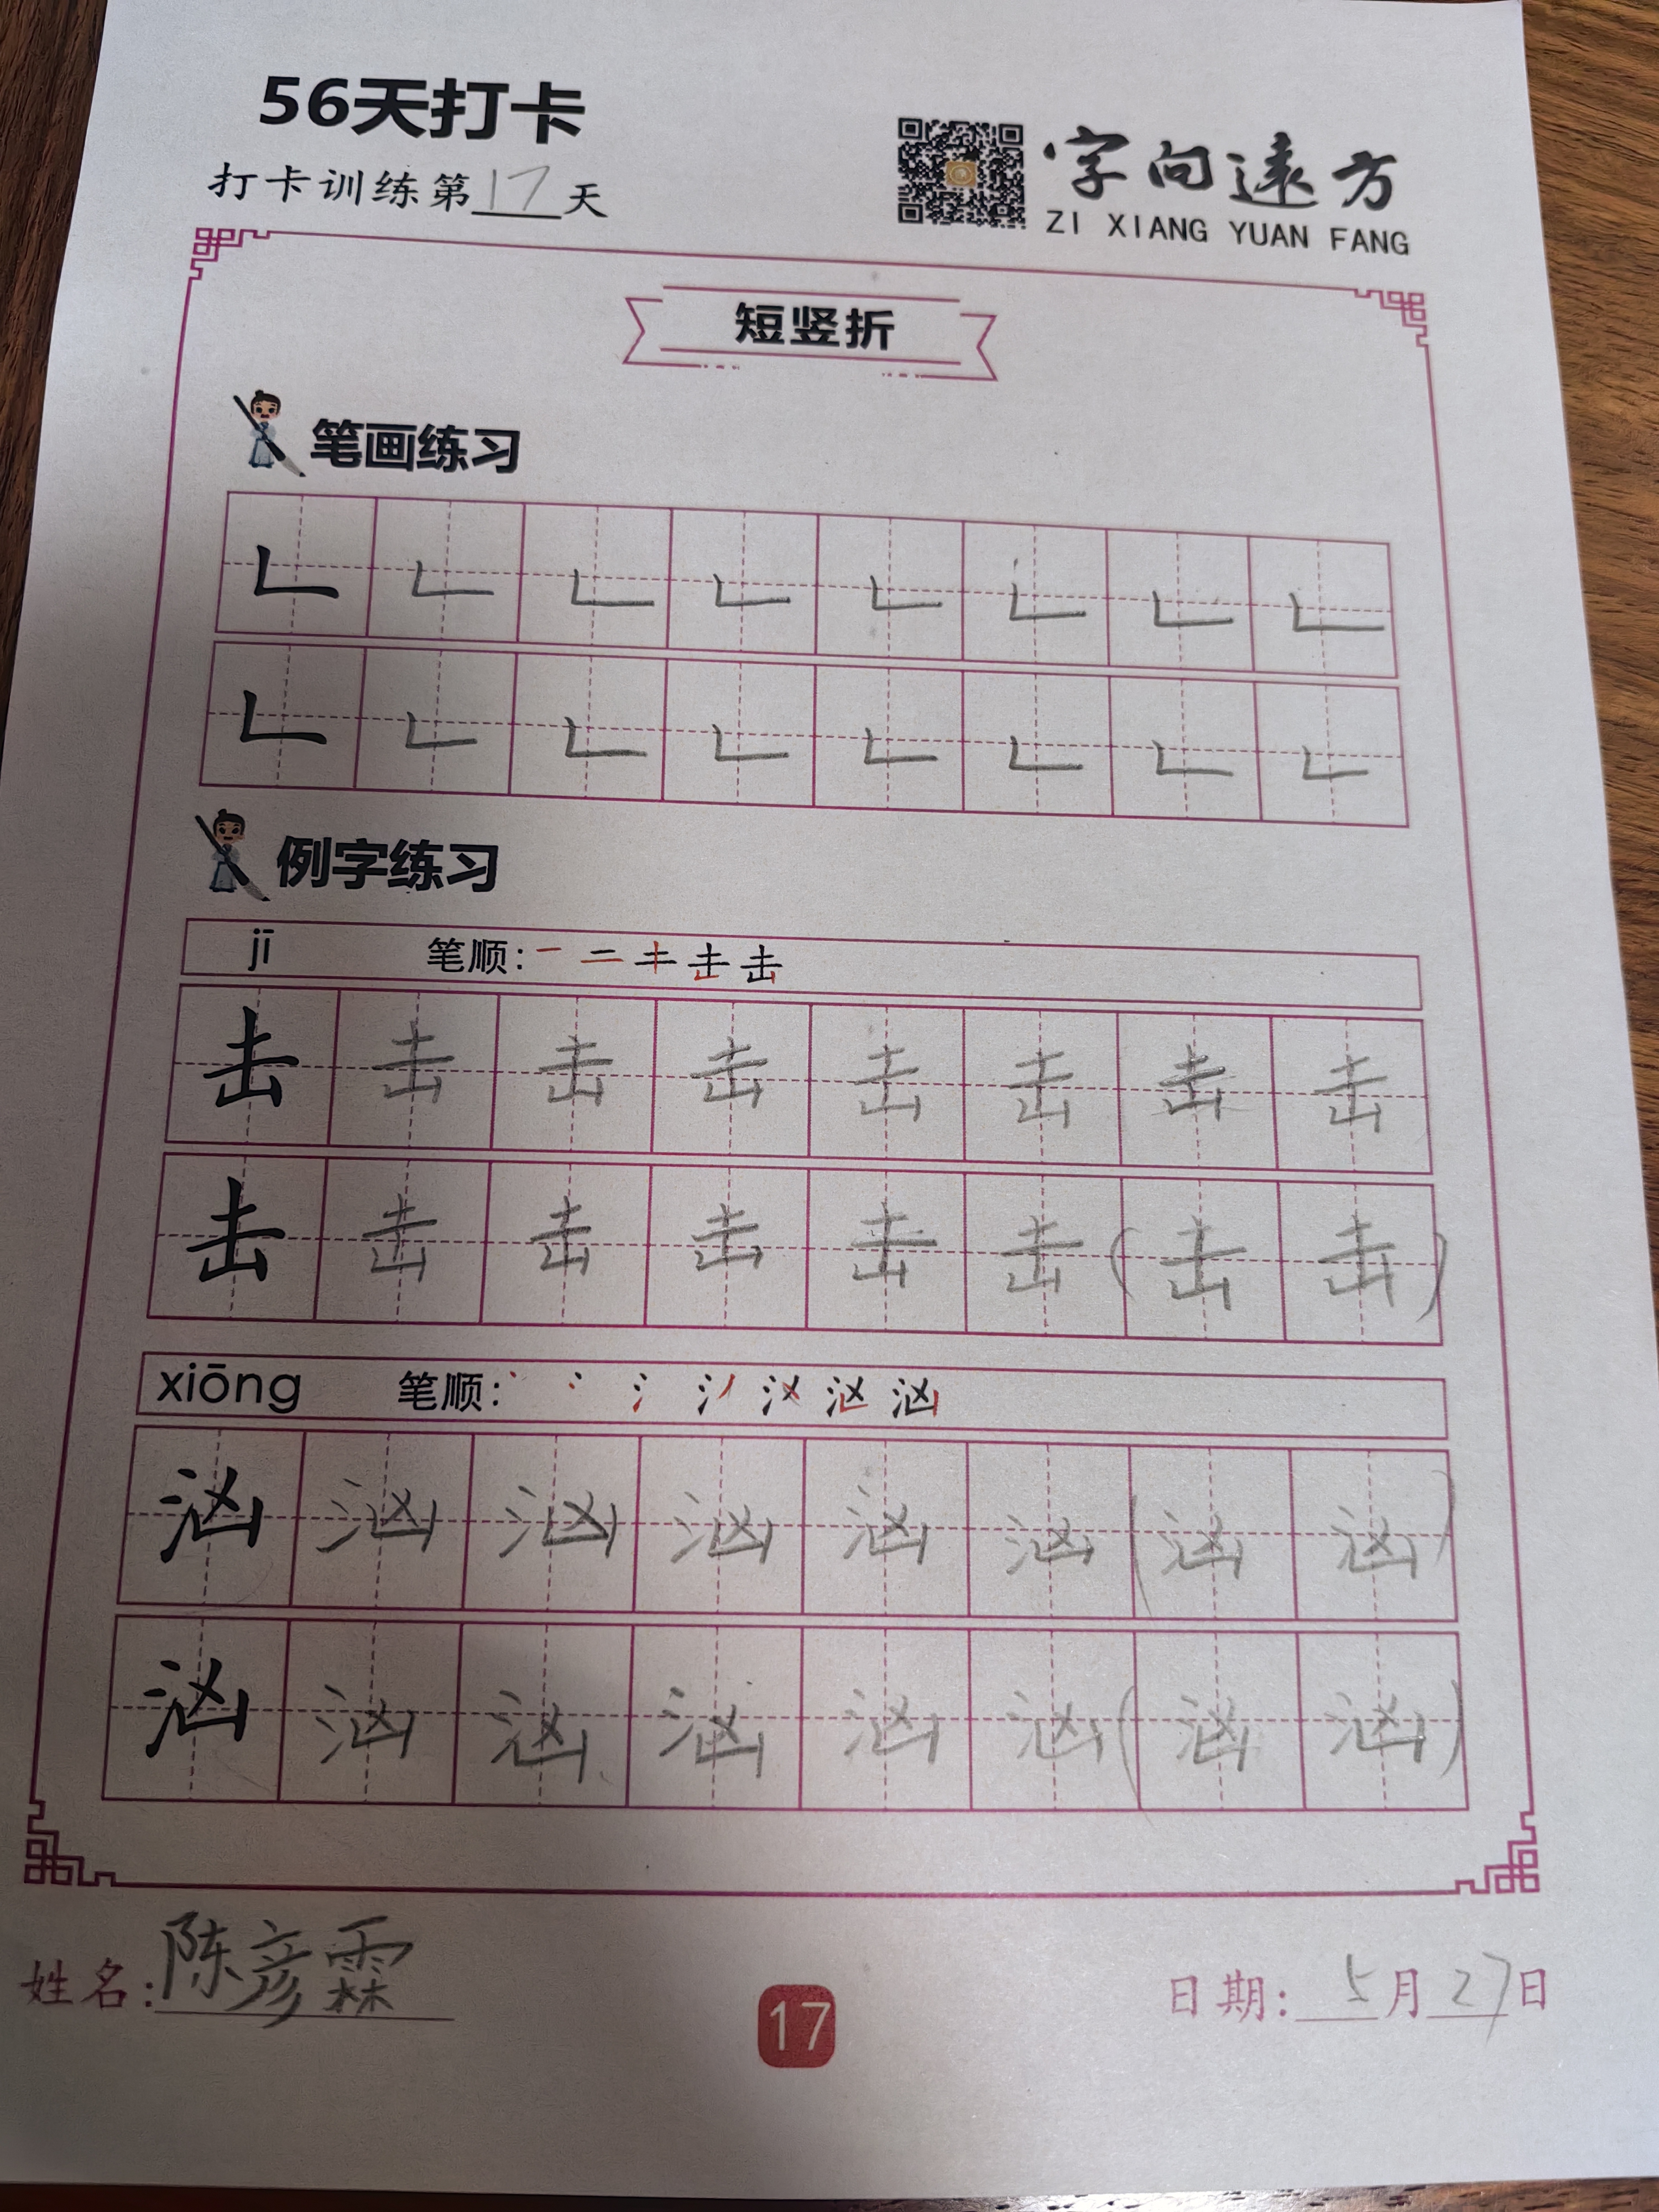 56天打卡
打卡训练第17天
字向遠方
ZI XIANG YUAN FANG
短竖折
笔画练习
𠃊 𠃊 𠃊 𠃊 𠃊 𠃊 𠃊 𠃊
𠃊 𠃊 𠃊 𠃊 𠃊 𠃊 𠃊 𠃊
例字练习
jī 笔顺: 一 二 キ 击 击
击 击 击 击 击 击 击 击
击 击 击 击 击 击 (击 击)
xiōng 笔顺: 汹
汹 汹 汹 汹 汹 汹 (汹 汹)
汹 汹 汹 汹 汹 汹 (汹 汹)
姓名: 陈彦霖
17
日期: 5月27日